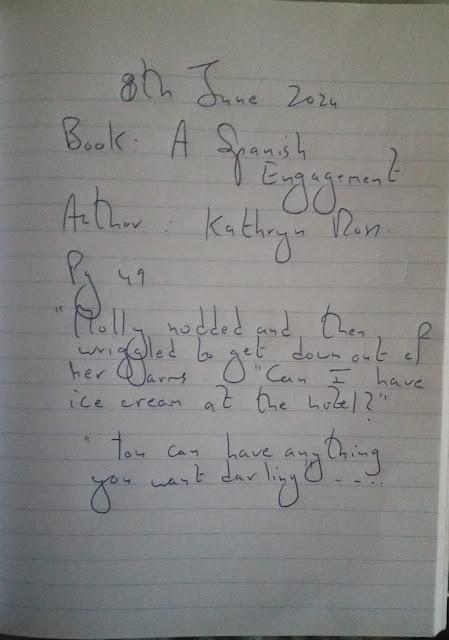 8th June 2024
Book: A Spanish
Engagement
Author: Kathryn Ross.
Pg 49
"Molly nodded and then
wriggled to get down out of
her arms. "Can I have
ice cream at the hotel?"
"You can have anything
you want darling" - - ...